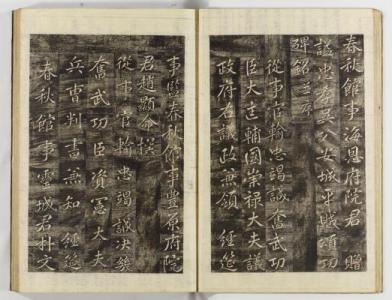 春秋館事海恩府院君 贈
諡忠孝吳公安城平賊頌功
碑銘并序
從事官輸忠竭誠奮武功
臣大匡輔國崇祿大夫議
政府右議政兼領 經筵
事監春秋館事豊原府院
君趙顯命撰
從事官輸忠竭誠決幾
奮武功臣資憲大夫
兵曹判書兼知 經筵
春秋館事靈城君朴文